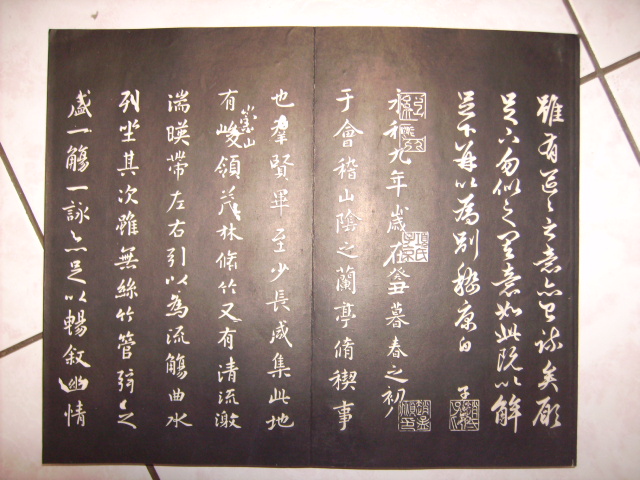 雖有區〻之意亦已疏矣願
足下勿似之其意如此既以解
足下并以為別嵇康白
永和九年歲在癸丑暮春之初
于會稽山陰之蘭亭脩禊事
也羣賢畢至少長咸集此地
有崇山峻領茂林脩竹又有清流激
湍暎帶左右引以為流觴曲水
列坐其次雖無絲竹管弦之
盛一觴一詠亦足以暢敘幽情